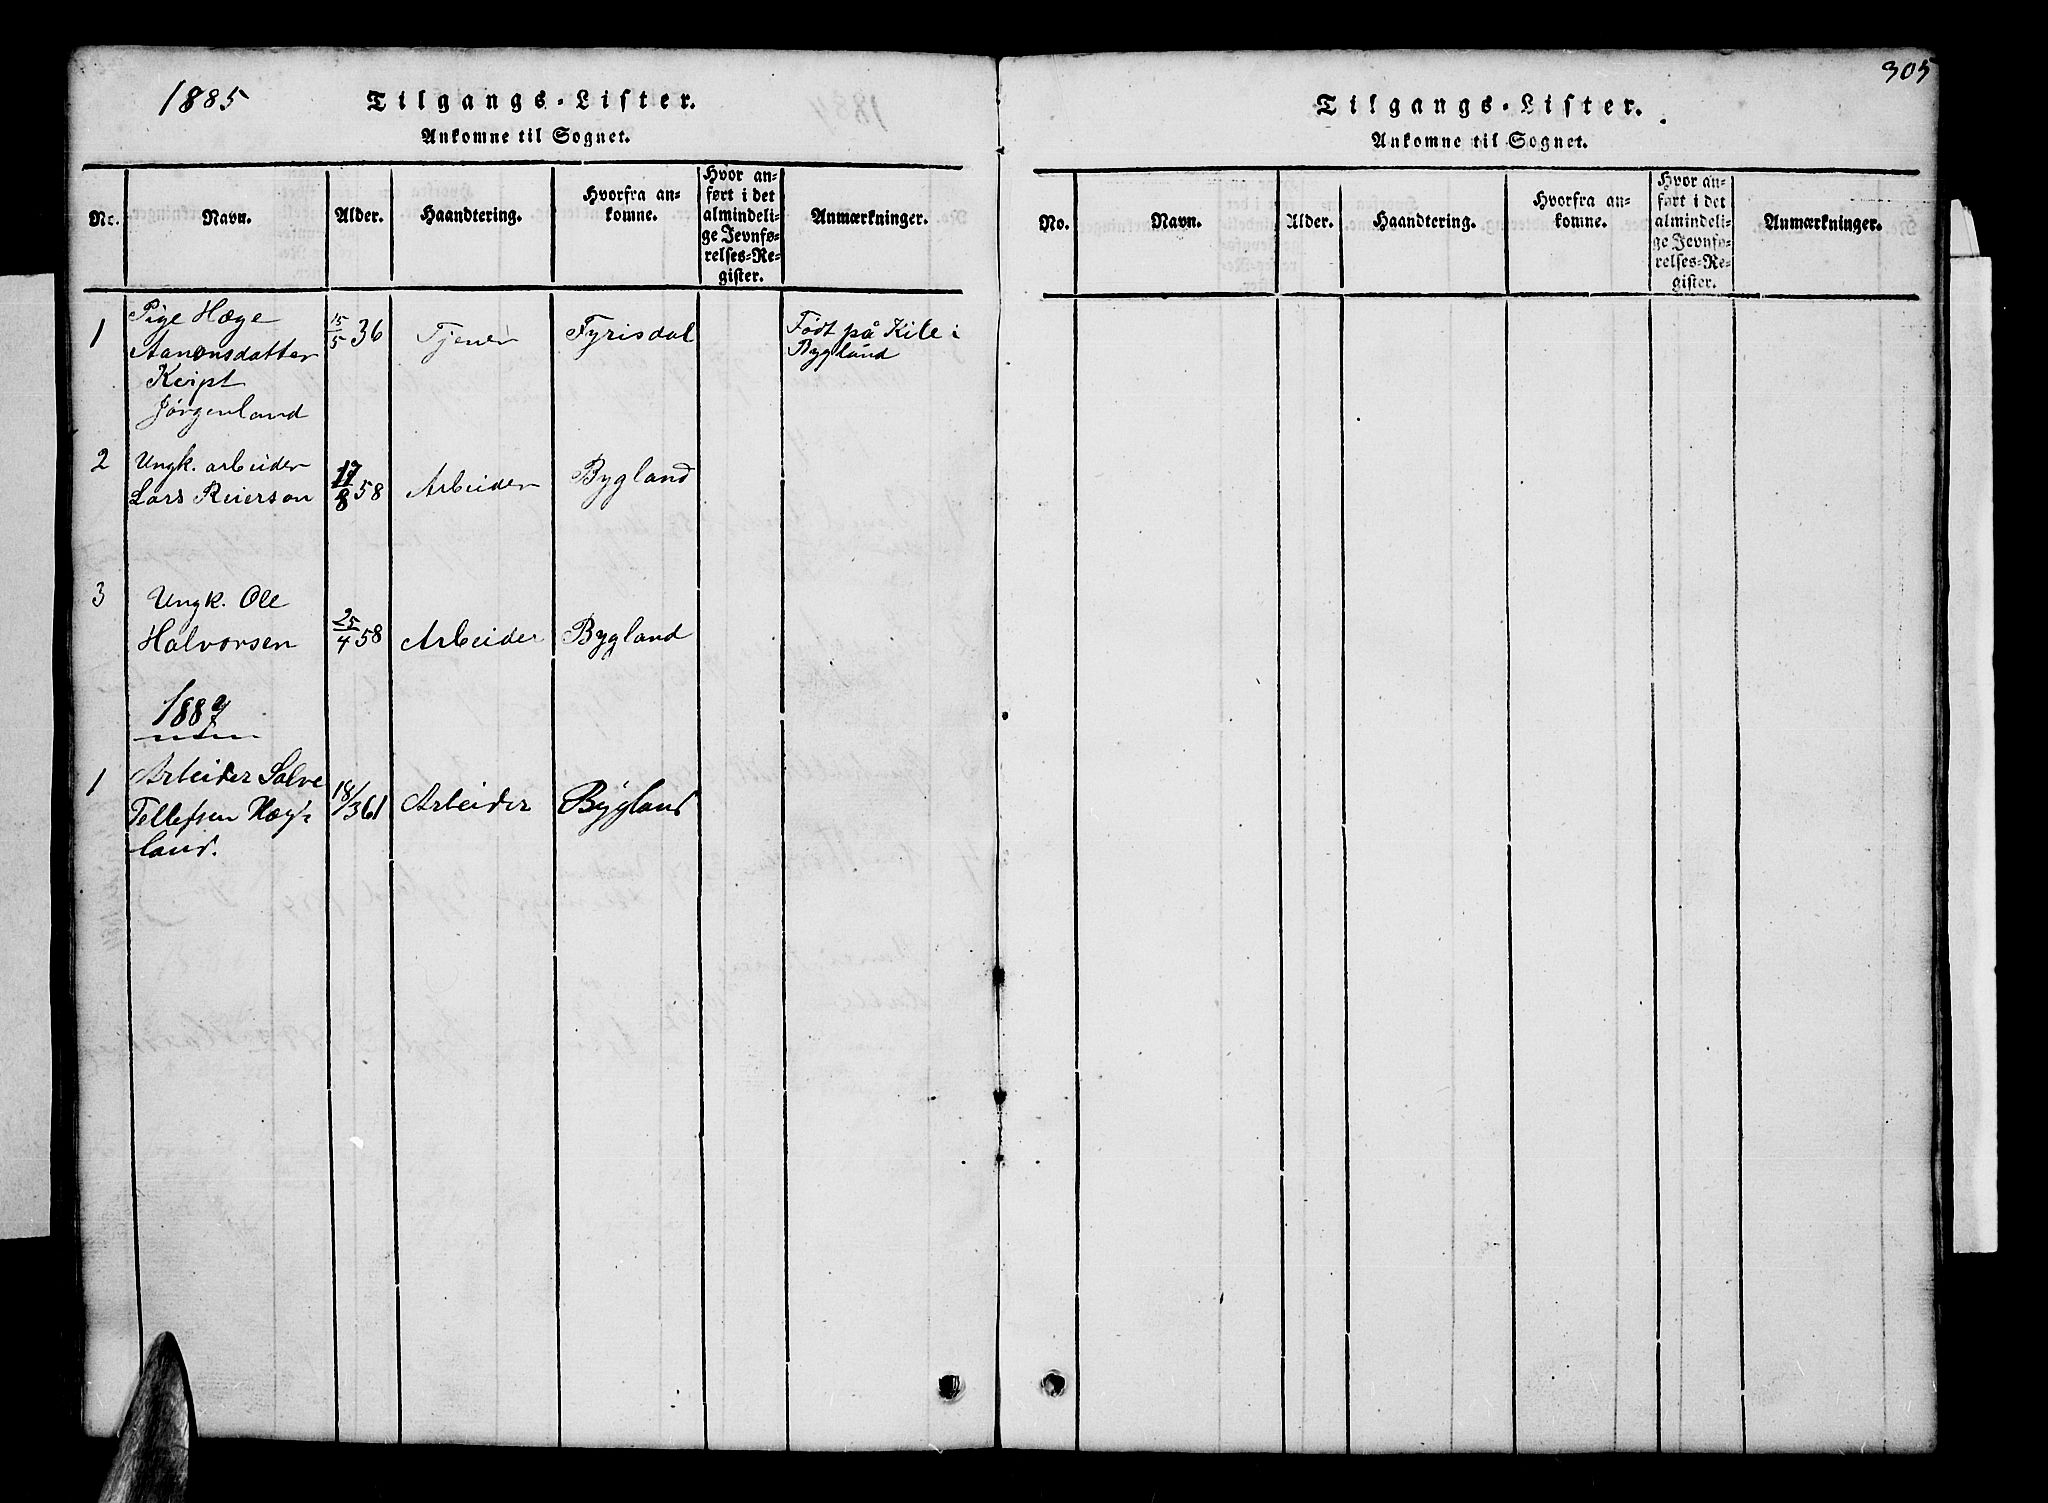 1885
Tilgangs-Lister.
Ankomne til Sognet.
No.
Navn.
Alder.
Haandtering.
Hvorfra an-
komne.
Hvor an-
ført i det
almindeli-
ge Jevnfø-
relses-Re-
gister.
Anmærkninger.
1
Pige Hæge
Aanonsdatter
Jörgenland
15/5 36
Tjener
Fyrisdal
Födt på Kile i
Bygland
2
Ungk. arbeider
Lars Reierson
17/8 58
Arbeider
Bygland
3
Ungk. Ole
Halvorsen
25/4 58
Arbeider
Bygland
1887
1
Arbeider Salve
Tellefsen Hæg-
land.
18/3 61
Arbeider
Bygland
305
Tilgangs-Lister.
Ankomne til Sognet.
No.
Navn.
Alder.
Haandtering.
Hvorfra an-
komne.
Hvor an-
ført i det
almindeli-
ge Jevnfø-
relses-Re-
gister.
Anmærkninger.